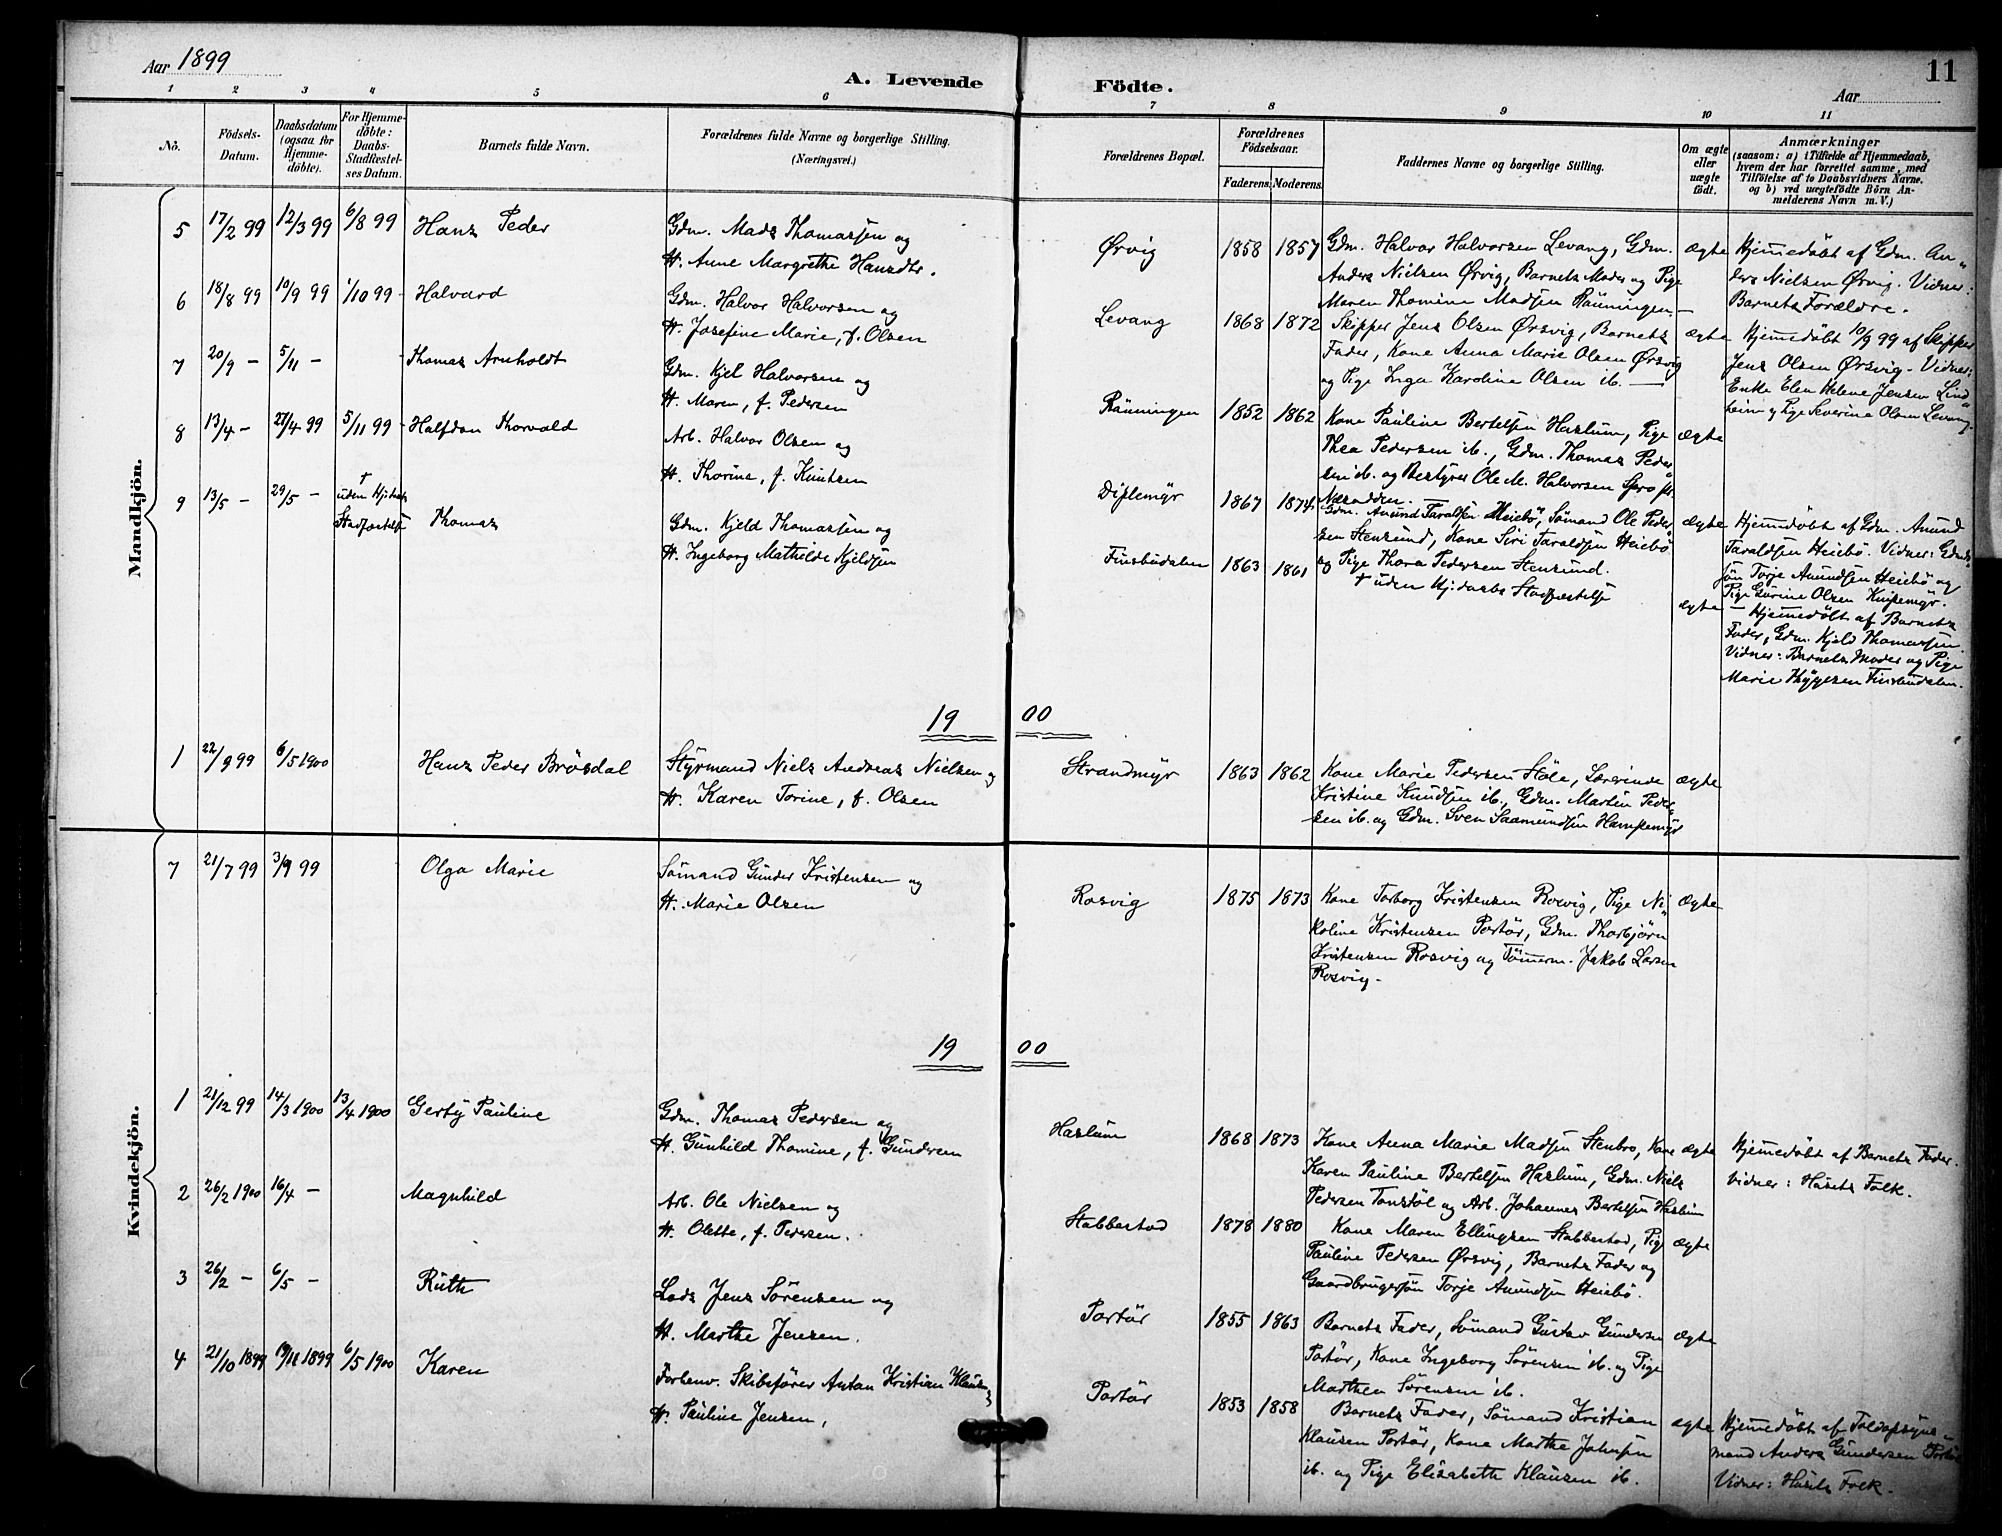 Aar 1899
A. Levende
Födte.
11
Aar
1 2 3 4 5 6 7 8 9 10 11
No.
Födsels-
Datum.
Daabsdatum
(ogsaa for
Hjemme-
döbte).
For Hjemme-
döbte:
Daabs-
Stadfæstel-
ses Datum.
Barnets fulde Navn.
Forældrenes fulde Navne og borgerlige Stilling.
(Næringsvei.)
Forældrenes Bopæl.
Forældrenes
Födselsaar.
Faderens. Moderens.
Faddernes Navne og borgerlige Stilling.
Om ægte
eller
uægte
födt.
Anmærkninger
(saasom: a) i Tilfælde af Hjemmedaab,
hvem der har forrettet samme, med
Tilföielse af to Daabsvidners Navne.
og b) ved uægtefödte Börn An-
melderens Navn m. V.)
Mandkjön.
5 17/2 99 12/3 99 6/8 99 Hans Peder
Gdm. Mads Thomassen og
H. Anne Margrethe Hansdtr.
Ørvig 1858 1857
Gdm. Halvor Halvorsen Levang, Gdm.
Anders Nielsen Ørvig, Barnets Moder og Pige
Maren Thomine Madsen Rönningen.
ægte
Hjemmedöbt af Gdm. An-
ders Nielsen Ørvig. Vidner:
Barnets Forældre.
6 18/8 99 10/9 99 1/10 99 Halvard
Gdm. Halvor Halvorsen og
H. Josefine Marie, f. Olsen
Levang 1868 1872
Skipper Jens Olsen Ørsvig, Barnets
Fader, Kone Anna Marie Olsen Ørsvig
og Pige Inga Karoline Olsen ib.
ægte
Hjemmedöbt 10/9 99 af Skipper
Jens Olsen Ørsvig. Vidner:
Enke Elen Helene Jensen Lind-
heim og Pige Severine Olsen Levang.
7 20/9 — 5/11 — Thomas Arnholdt
Gdm. Kjel Halvorsen og
H. Maren, f. Pedersen
Rönningen 1852 1862
Kone Pauline Bertelsen Haslum, Pige
Thea Pedersen ib., Gdm. Thomas Peder-
sen ib. og Bestyrer Ole M. Halvorsen
Næsodden.
ægte
8 13/4 — 27/4 99 5/11 99 Halfdan Thorvald
Arb. Halvor Olsen og
H. Thorine, f. Knutsen
1867 1874
Gdm. Amund Taraldsen Heiebö, Sömand Ole Peder-
sen Stensund, Kone Siri Taraldsen Heiebö
og Pige Thora Pedersen Stensund.
ægte
Hjemmedöbt af Gdm. Amund
Taraldsen Heiebö. Vidner: Gdm.
sön Torje Amundsen Heiebö og
Pige Gurine Olsen Knipemyr.
9 13/5 — 29/5 —
†
uden Hj.daabs
Stadfæstelse
Thomas
Gdm. Kjeld Thomassen og
H. Ingeborg Mathilde Kjeldsen
Finsbudalen 1863 1861
† uden Hj.daabs Stadfæstelse
ægte
— Hjemmedöbt af Barnets
Fader, Gdm. Kjeld Thomassen.
Vidner: Barnets Moder og Pige
Marie Finsbudalen.
19 00
1 22/9 99 6/5 1900 Hans Peder Brösdal
Styrmand Niels Andreas Nielsen og
H. Karen Torine, f. Olsen
Strandmyr 1863 1862
Kone Marie Pedersen Støle, Lærerinde
Kristine Knudsen ib., Gdm. Martin Peder-
sen ib. og Gdm. Sven Saamundsen
ægte
Kvindekjön.
7 21/7 99 3/9 99 Olga Marie
Sömand Gunder Kristensen og
H. Marie Olsen
Rosvig 1875 1873
Kone Torborg Kristensen Rosvig, Pige Ni-
koline Kristensen Portör, Gdm. Thorbjörn
Kristensen Rosvig og Tömerm. Jakob Larsen
Rosvig.
ægte
19 00
1 21/12 99 14/3 1900 13/4 1900 Gerty Pauline
Gdm. Thomas Pedersen og
H. Gunhild Thomine, f. Gundersen
Haslum 1868 1873
Kone Anna Marie Madsen Stenbro, Kone
Karen Pauline Bertelsen Haslum, Gdm. Niels
Pedersen Tonstöl og Arb. Johannes Bertelsen Haslum
ægte
Hjemmedöbt af Barnets Fader.
Vidner: Husets Folk.
2 26/2 1900 16/4 — Magnhild
Arb. Ole Nielsen og
H. Olette, f. Pedersen.
Stabbestad 1878 1880
Kone Maren Ellingsen Stabbestad, Pige
Pauline Pedersen Ørsvig, Barnets Fader og
Gaardbrugersön Torje Amundsen Heiebö.
ægte
3 26/2 — 6/5 — Ruth
Lods Jens Sörensen og
H. Marthe Jensen.
Portör 1855 1863
Barnets Fader, Sömand Gustav Gundersen
Portör, Kone Ingeborg Sörensen ib. og Pige
Marthea Sörensen ib.
ægte
4 21/10 1899 19/11 1899 6/5 1900 Karen
Forhenv. Skibsförer Anton Kristian Klausen
H. Pauline Jensen,
Portör 1853 1858
Barnets Fader, Sömand Kristian
Klausen Portör, Kone Marthe Johnsen
ib. og Pige Elisabeth Klausen ib.
ægte
Hjemmedöbt af Toldopsyns-
mand Anders Gundersen Portör
Vidner: Husets Folk.